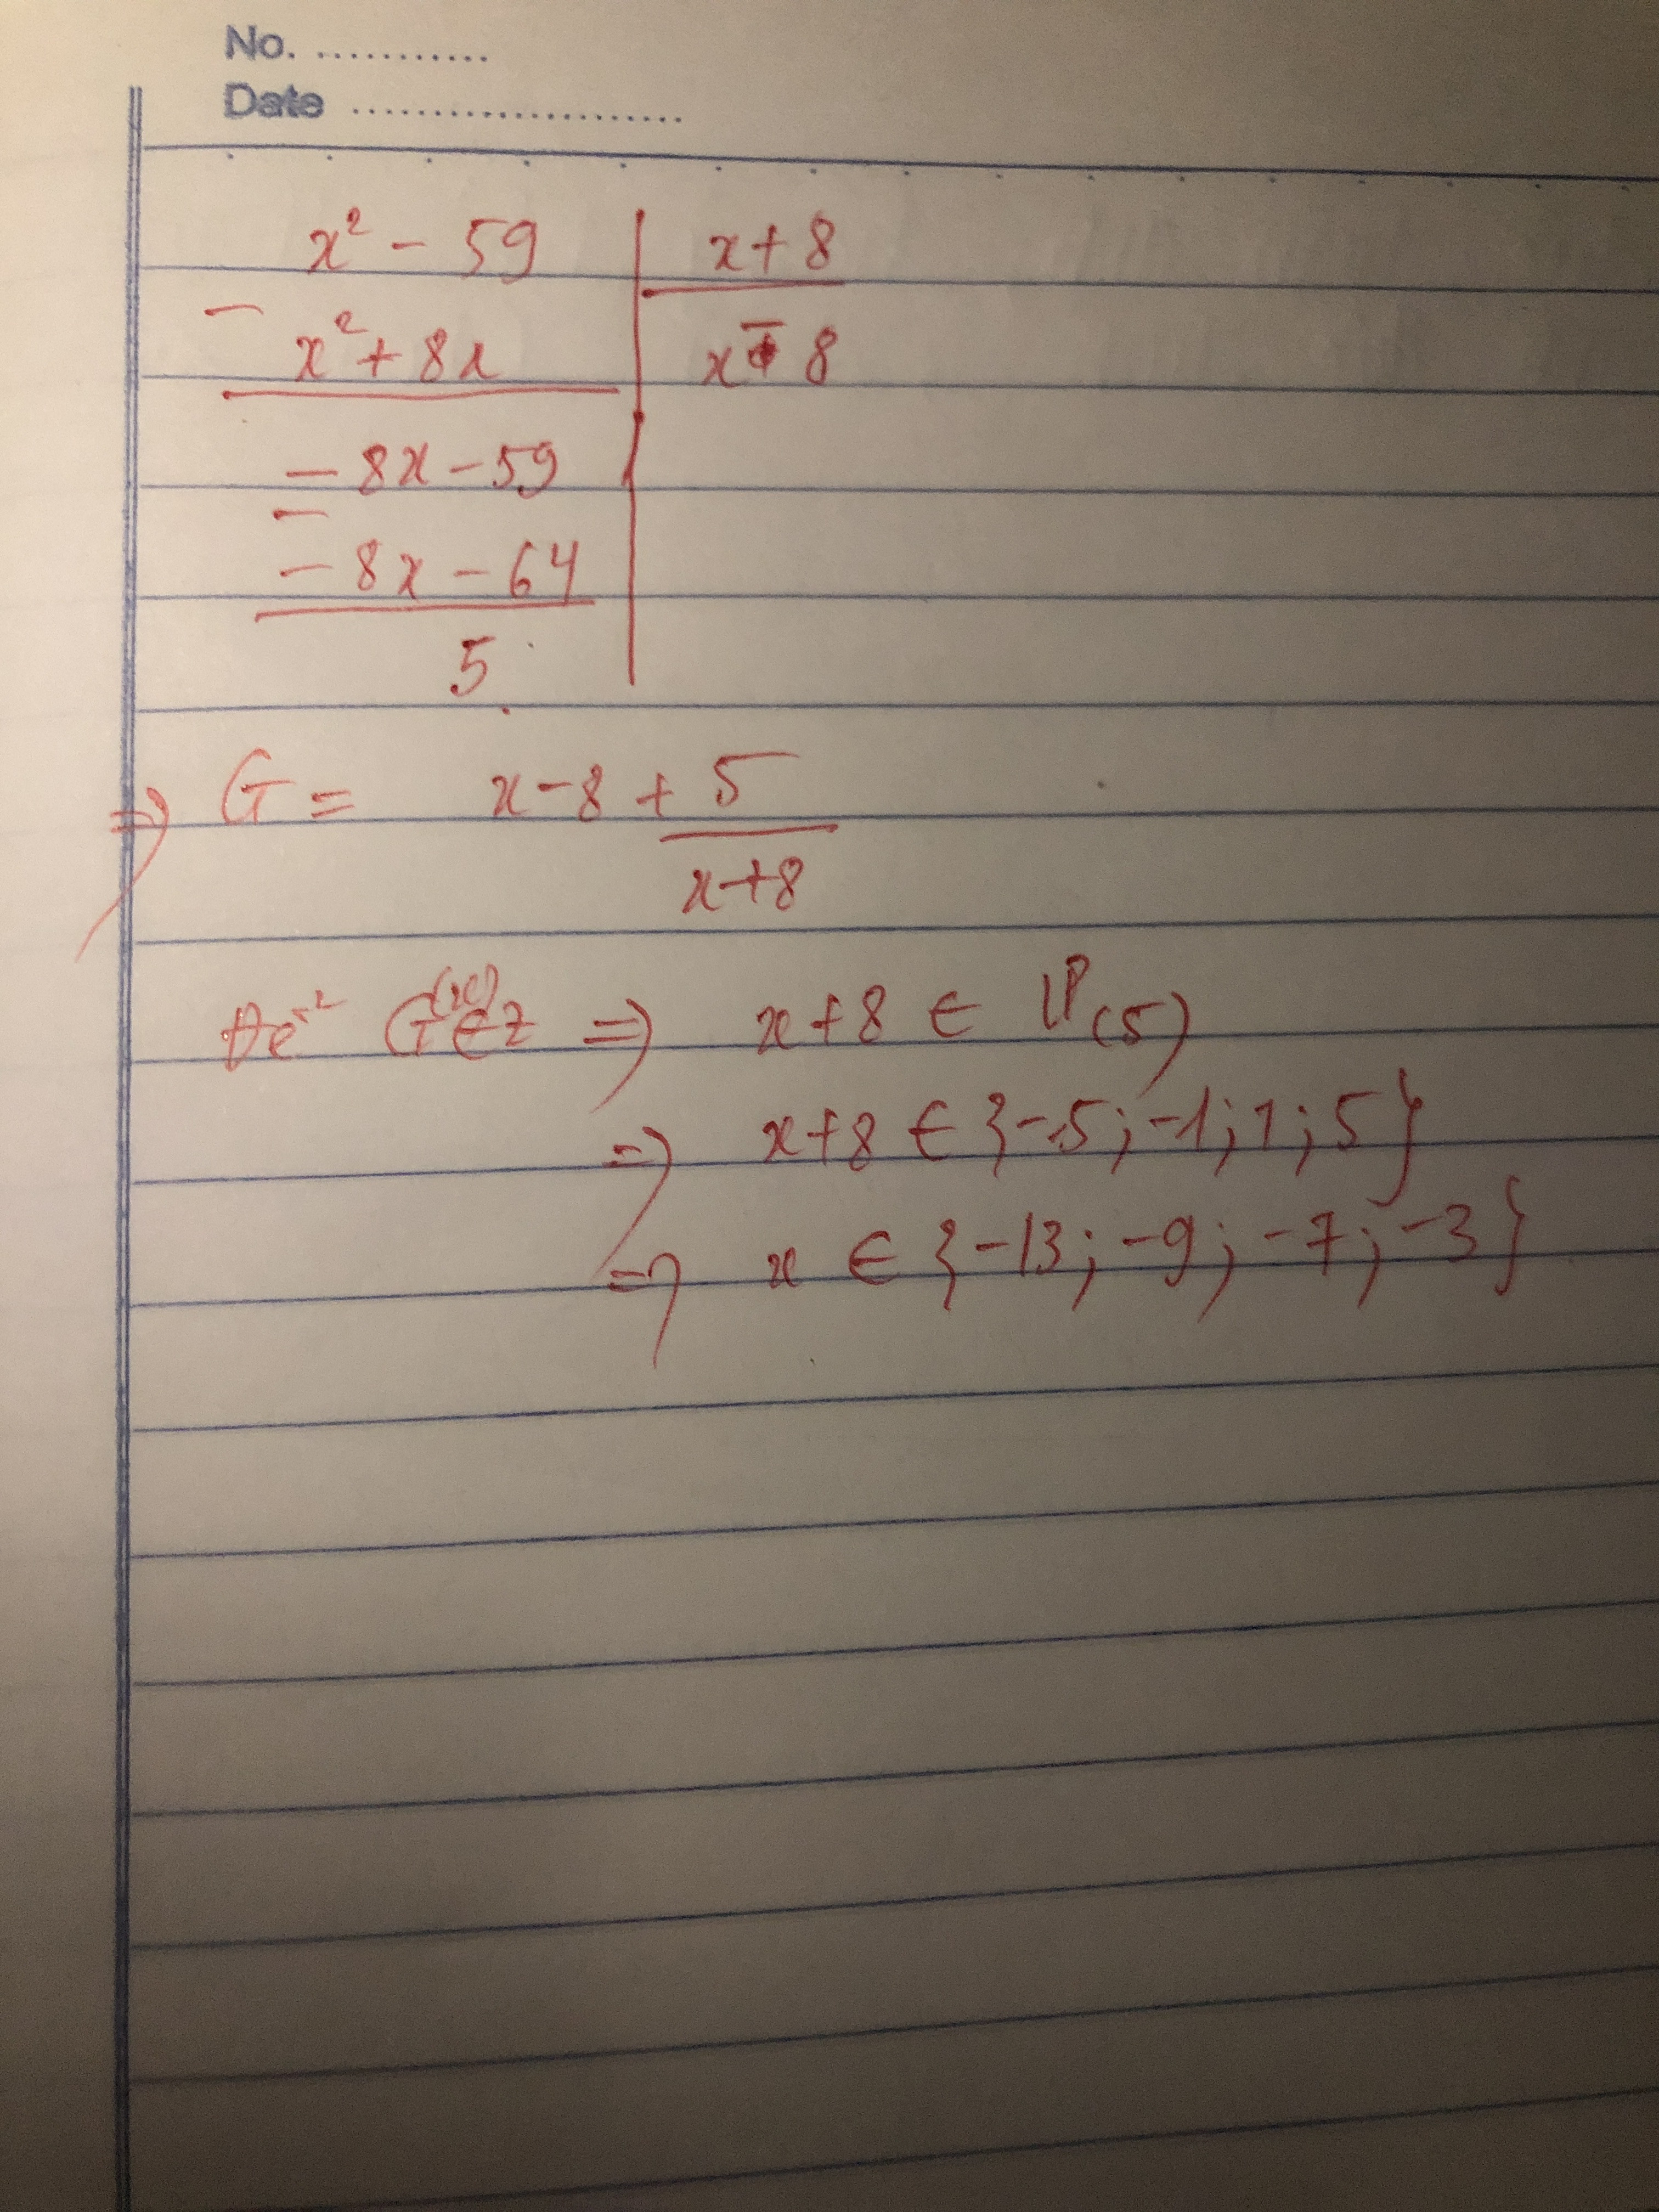 No. ...........
Date ......................
x² - 59 | x + 8
- x² + 8x | x - 8
- 8x - 59
- - 8x - 64
5
=> G = x - 8 + 5/(x+8)
Để G(x) ∈ Z => x + 8 ∈ Ư(5)
=> x + 8 ∈ {-5; -1; 1; 5}
=> x ∈ {-13; -9; -7; -3}